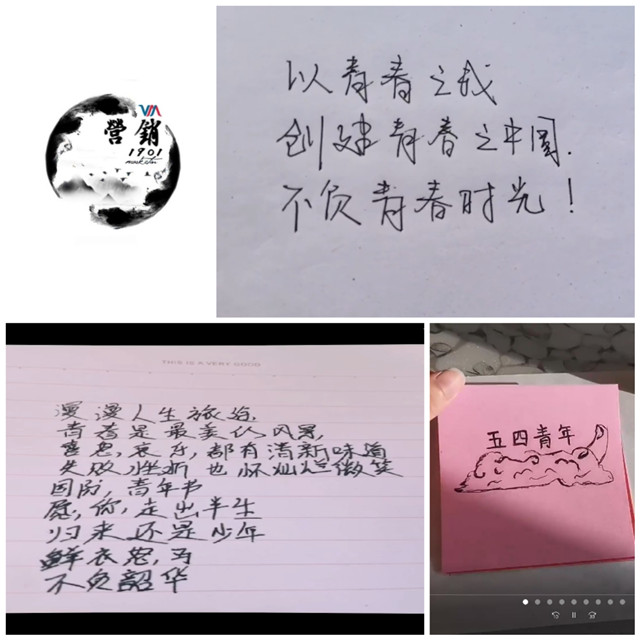 營銷
1901
以青春之我
创建青春之中国.
不负青春时光！
THIS IS A VERY GOOD
漫漫人生旅途,
青春是最美的风景,
喜怒,哀乐,都有清新味道
失败挫折也怀灿烂微笑
青年节
愿,你,走出半生
归来还是少年
鲜衣怒,马
不负韶华
五四青年